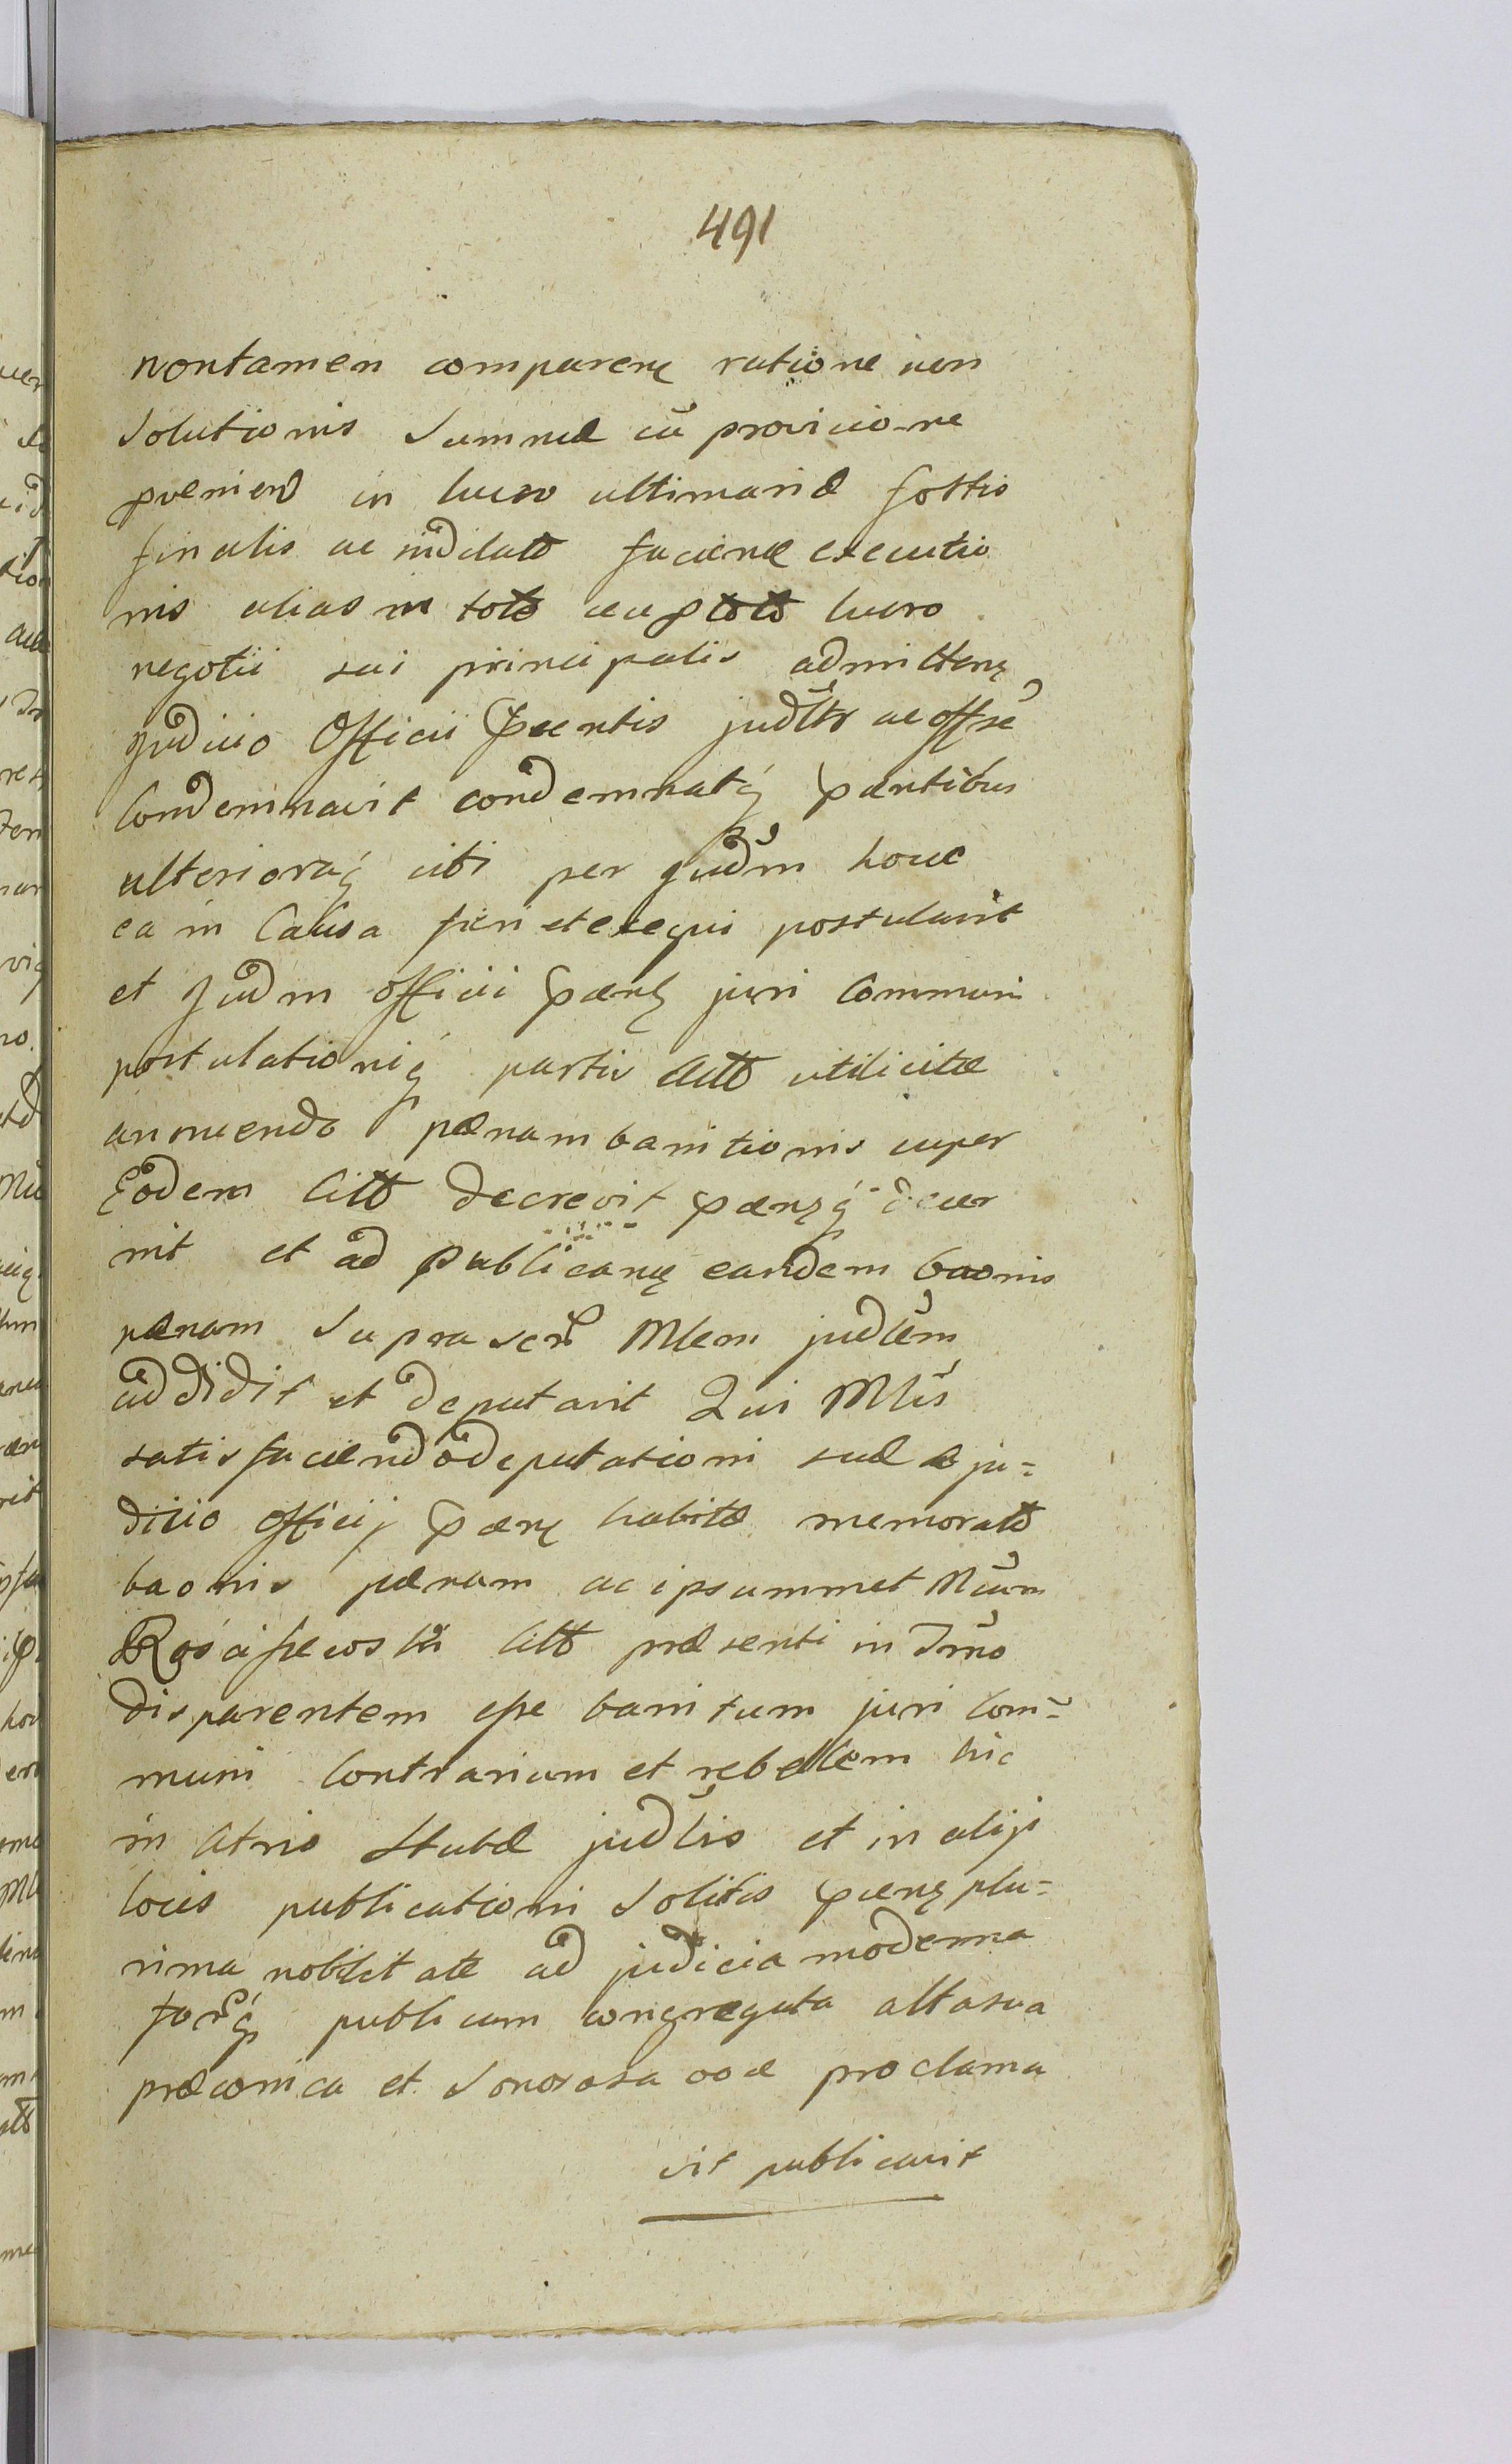 491
nontamen comparenę ratione non
Solutionis Summæ cū provisio-ne
pvenien in lucro ultimariæ
finalis ac indilato faciendæ executio
nis alias in toto ac ptoto lucro
negotii sui principalis admittenę
Judicio Officii pntis judltr ac offse
Condemnavit condemnatq partibus
ulterioraq ubi per Judm hocce
ea in Causa fieri et exequi postulavit
et Judm officii pnę juri Communi
postulationiq partis Actt utilicitæ
annuendo pænam banitionis super
Eodem Citt decrevit decer
nit et ad publicanę eandem baonis
pænam suprascr Mlem judlem
addidit et deputavit Qui Mlis
satisfaciendo deputationi suæ a ju=
dicio officij pnę habitæ memorato
baonis pænam ac ipsummet
Citt præsenti in Trno
disparentem esse banitum juri Com=
muni Contrarium et rebellem hic
in Atrio Stubæ judlis et in alijs
locis publicationi Solitis pnę plu=
rima nobilitate ad judicia moderna
forq publicum congregata alta sua
præconica et Sonorosa oce proclama
vit publicavit